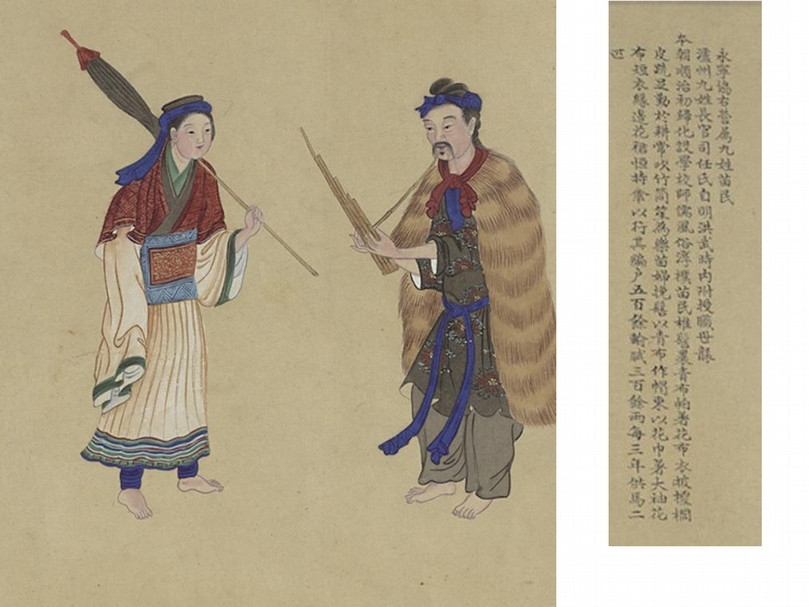 永寧協右營屬九姓苗民
瀘州九姓長官司任氏自明洪武時內附授職毋替
本朝順治初歸化設學校師儒風俗淳樸苗民椎髻裹青布帕著花布衣披椶櫚
皮跣足勤於耕常吹竹筒笙為樂苗婦挽髻以青布作帽束以花巾著大袖花
布短衣緣邊花裙恒持傘以行其編戶五百餘輸賦三百餘兩每三年供馬二
匹